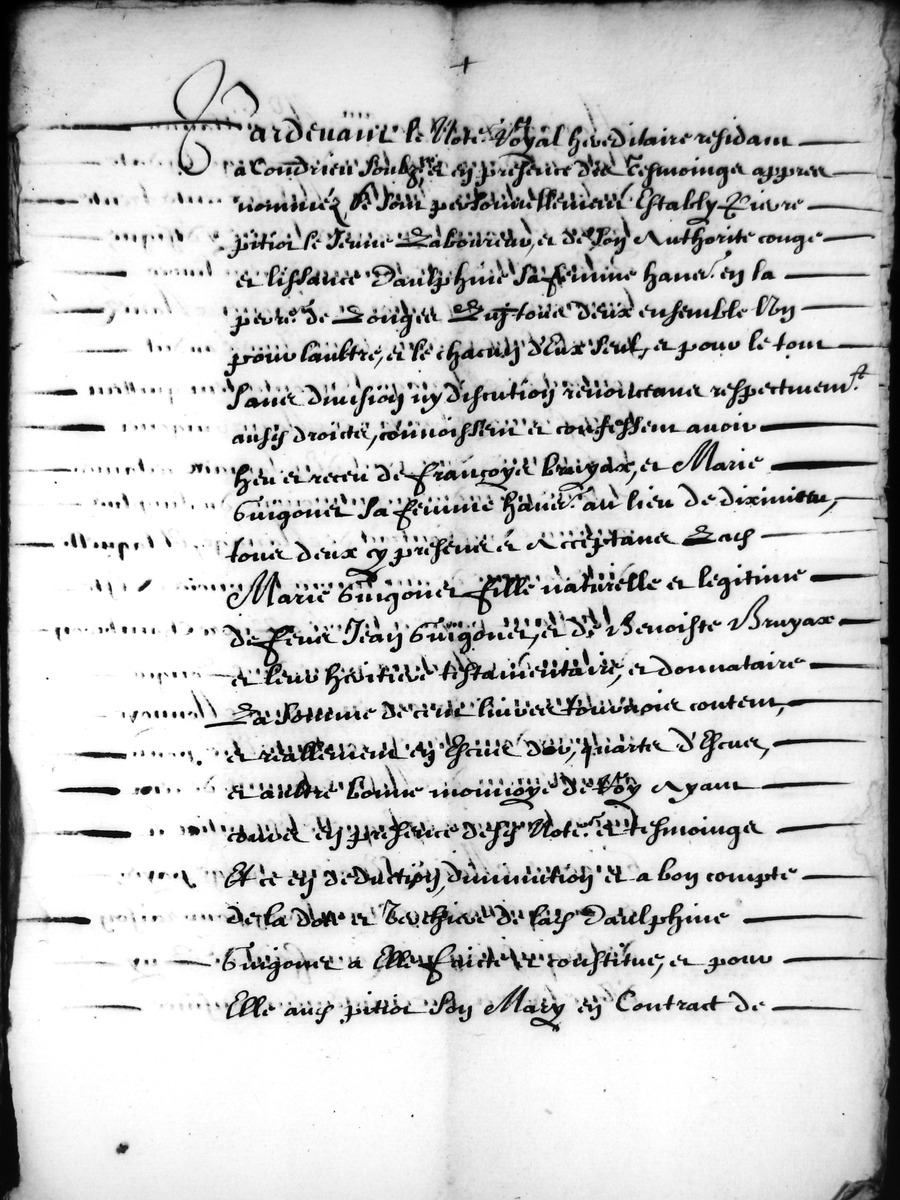 Pardevant le Note. Royal hereditaire residant
a Condrieu soubz.ne et en presence des tesmoings appres
nommez se sont personnellement Establly Pierre
pitiot le Jeune Laboureur, et de son Authorite conge
et lissance Daulphine sa femme hant. en la
perre. de Longes Lesq. tous deux ensemble Un
pour laultre, et le chacun d'Eux seul, et pour le tout
sans division ny discution renonceant respectivemt.
ausd droicts, connoissent et confessent avoir
heu et receu de françoys bruyax, et Marie
Guigonet sa femme hant. au lieu de diximieu,
tous deux cy present et Acceptans Lad
Marie Guigonet fille naturelle et legitime
de feue Jean Guigonet, et de Benoiste Bruyax
et leur heritiere testamentaire, et donnataire
La somme de cent livres tournois content,
et reallement en Escus d'or, quarts d'Escus,
et aultre bonne monnoye de Roy Ayant
cours en presence desd Note. et tesmoings
Et ce en deduction, diminution et a bon compte
de la dote et Verchiere de lad Daulphine
Guigonet a Elle faicte et constitue, et pour
Elle aud pitiot son Mary en Contract de